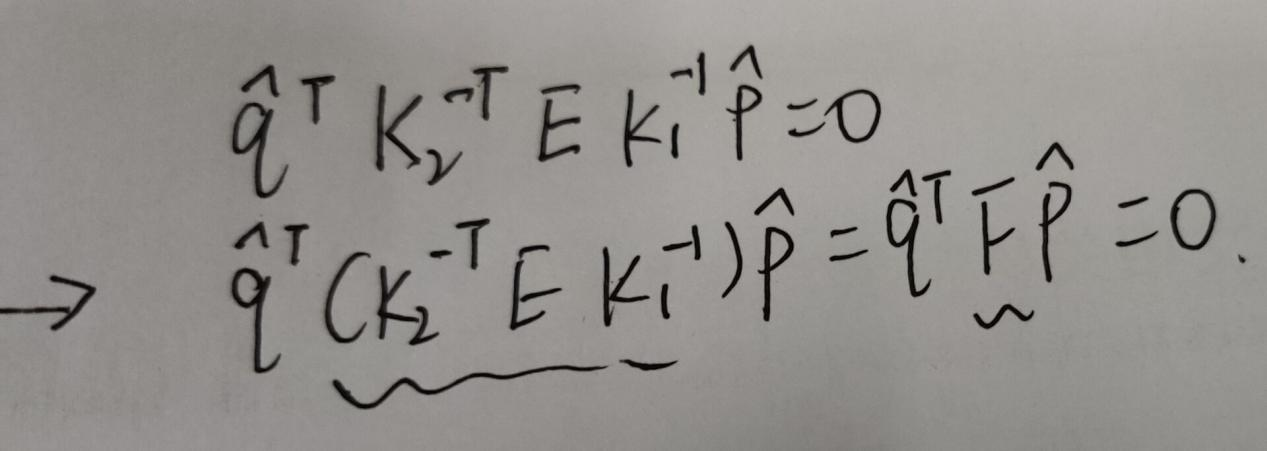 q̂ᵀ K₂⁻ᵀ E K₁⁻¹ p̂ = 0
→ q̂ᵀ (K₂⁻ᵀ E K₁⁻¹) p̂ = q̂ᵀ F p̂ = 0.